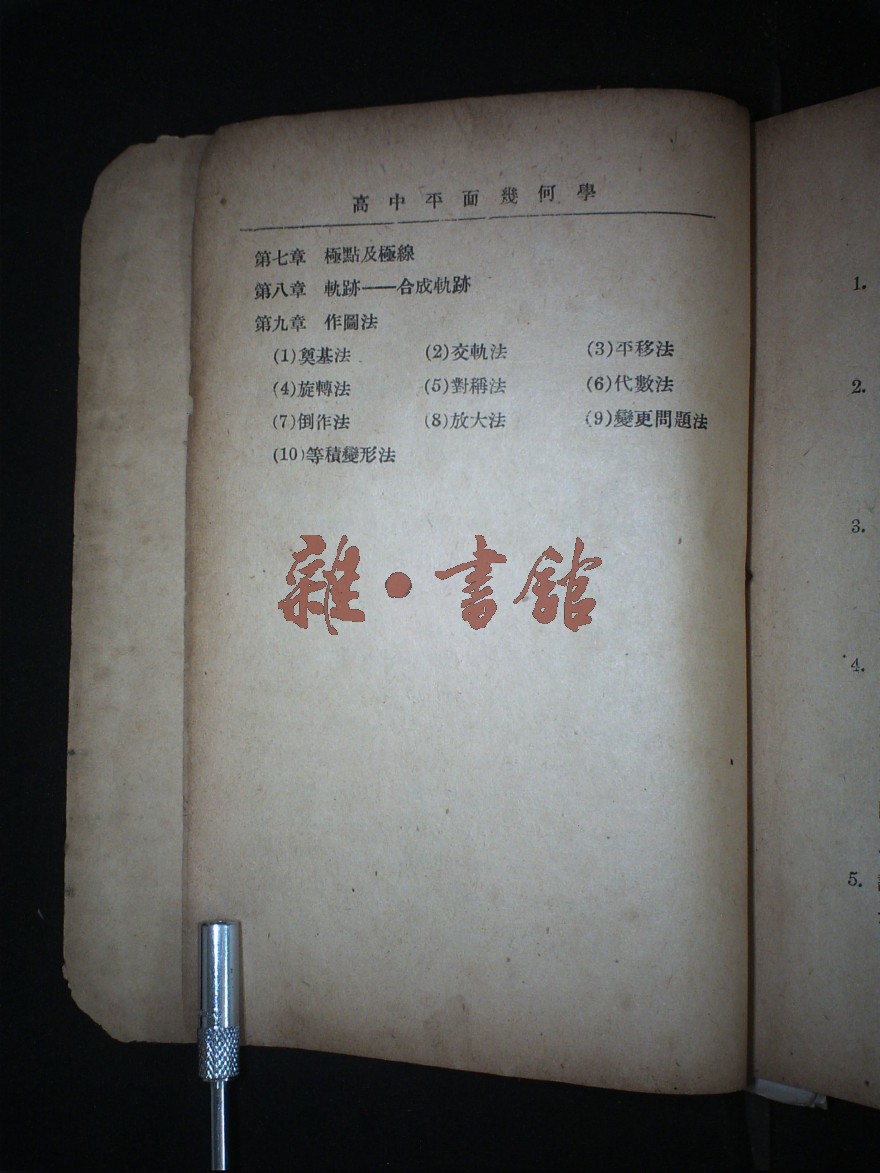 高中平面幾何學
第七章 極點及極線
第八章 軌跡——合成軌跡
第九章 作圖法
(1)奠基法 (2)交軌法 (3)平移法
(4)旋轉法 (5)對稱法 (6)代數法
(7)倒作法 (8)放大法 (9)變更問題法
(10)等積變形法
雜·書館
1.
2.
3.
4.
5.